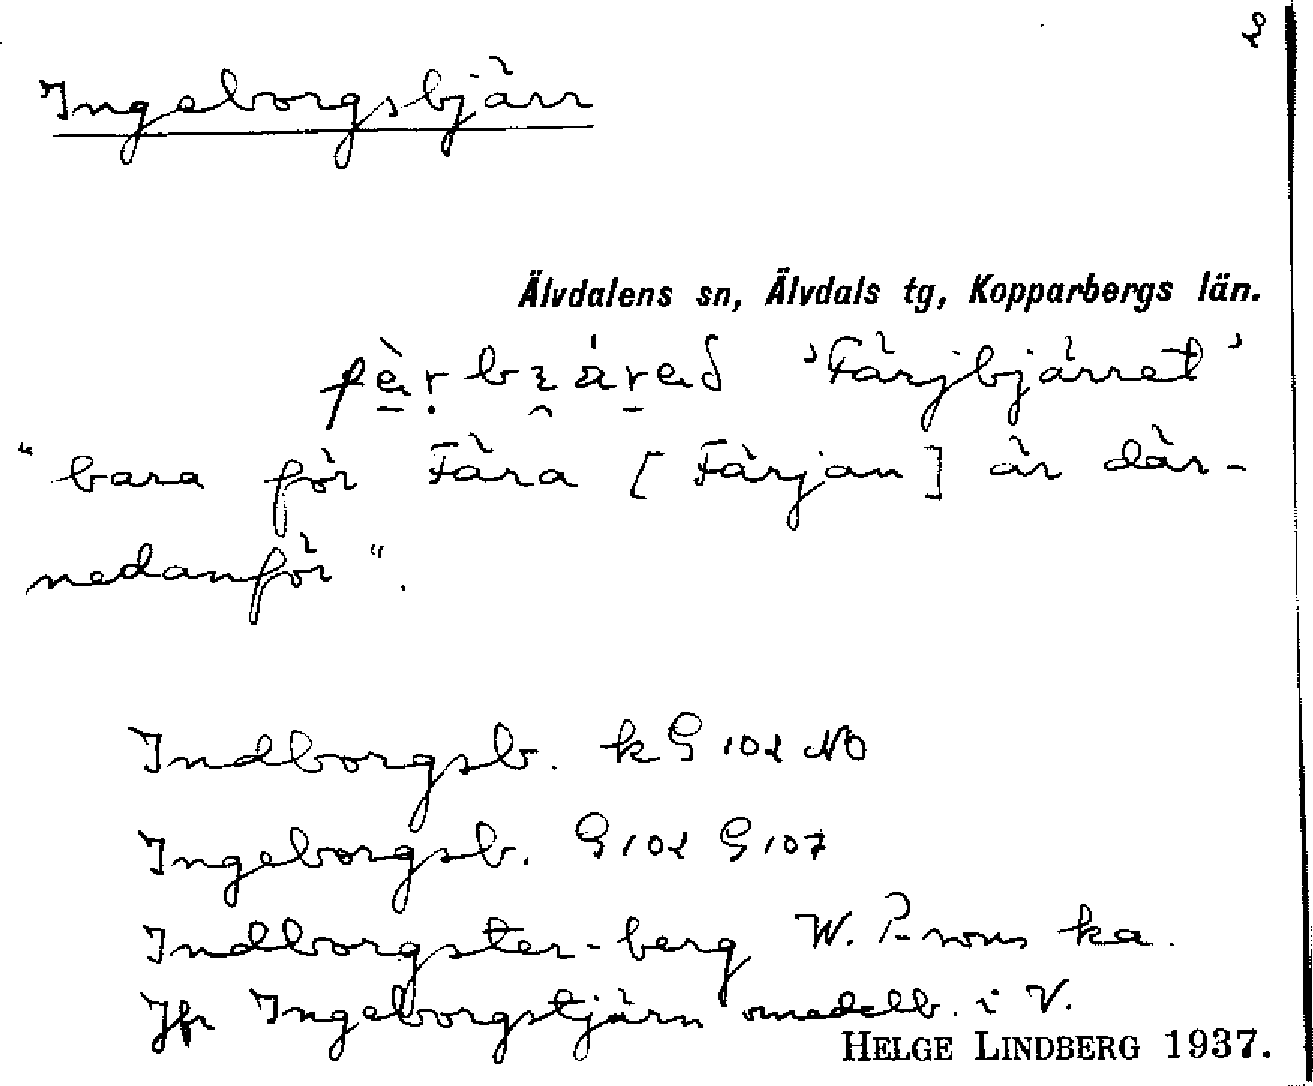 2
Ingeborgsbjärr
Älvdalens sn, Älvdals tg, Kopparbergs län.
'Färjbjärret'
"bara för Fära [Färjan] är där-
nedanför".
Indborgsb. kG 102 NO
Ingeborgsb. G 102 G 107
Indborgster-berg W. P-sons ka.
Jfr Ingeborgstjärn omedelb. i V.
HELGE LINDBERG 1937.